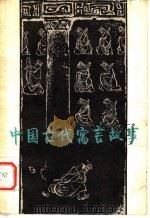 中国古代寓言故事
92